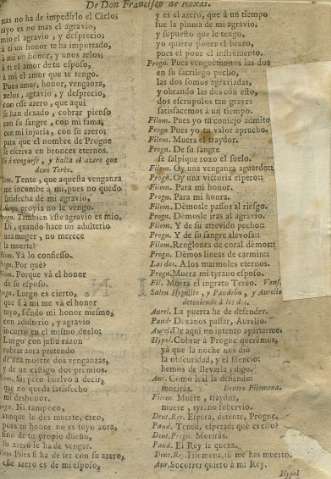 De Don Francisco de Roxas.
mas no ha de impedirlo el Carlos
suyo es no mas el agravio,
mio el agravio, y desprecio,
à ti un honor te ha importado,
à mi un honor, y unos zelos;
à ti el amor de tu esposo,
à mi el amor que te tengo.
Pues amor, honor, venganza,
zelos, agravio, y desprecio,
con esse azero, que aqui
se han dexado, cobrar pienso
con su sangre, con mi fama,
con mi injuria, con su azero;
para que el nombre de Progne
se escriva en bronces eternos.
Và à vengarse, y halla el azero que
dexò Tereo.
Filom. Tente, que aquessa venganza
me incumbe à mi, pues no quedo
satisfecha de mi agravio,
si mi agravio no le vengo.
Progn. Tambien esse agravio es mio,
Di, quando hace un adulterio
una muger, no merece
la muerte?
Filom. Yà lo confiesso.
Progn. Por què?
Filom. Porque và el honor
de su esposo.
Progn. Luego es cierto,
que si à mi me và el honor
tuyo, siendo mi honor mesmo,
con adulterio, y agravio
incurre en el mismo duelo:
Luego con justa razon
cobrar aora pretendo
de una muerte dos venganzas,
y de un castigo dos premios.
Filom. Si; pero buelvo à decir,
que no queda satisfecho
mi deshonor.
Progn. Ni tampoco,
aunque le des muerte, creo,
pues tu honor no es tuyo aora,
sino de tu propio dueño,
tu azero le ha de vengar.
Filom. Pues si ha de ser con su azero,
esse azero es de mi esposo,
y es el azero, que à un tiempo
fue la pluma de mi agravio,
y supuesto que le tengo,
yo quiero poner el brazo,
pues èl pone el instrumento.
Progn. Pues venguemonos las dos
en su sacrilego pecho,
las dos somos agraviadas,
y obrando las dos con esto,
dos escrupulos tan graves
satisfacemos à un tiempo.
Filom. Pues yo tu consejo admito.
Progn. Pues yo tu valor apruebo.
Filom. Muera el traydor.
Progn. De su sangre
se salpique roxo el suelo.
Filom. Oy una venganza aguardo;
Progn. Oy una victoria espero;
Filom. Para mi honor.
Progn. Para mi honra.
Filom. Demosle passo al riesgo.
Progn. Demosle iras al agravio.
Filom. Y de su atrevido pecho:
Progn. Y de su sangre alevosa:
Filom. Renglones de coral demos:
Progn. Demos lineas de carmin:
Las dos. A los marmoles eternos.
Progn. Muera mi tyrano esposo.
Fil. Muera el ingrato Tereo. Vanse.
Salen Hypolito, y Pandron, y Aurelio
deteniendo à los dos.
Aurel. La puerta he de defender.
Pand. Dexanos passar, Aurelio.
Aurel. De aqui no intento apartarme.
Hypol. Cobrar à Progne queremos,
yà que la noche nos diò
la obscuridad, y el silencio;
hemos de llevarla, digo.
Aur. Como leal la defiendo:
moriràs. Dentro Filomena.
Filom. Muere, traydor,
muere, tyrano sobervio.
Dent. Rey. Espera, detente, Progne.
Pand. Tened, esperad: què es esto?
Dent. Progn. Moriràs.
Pand. El Rey se quexa.
Dent. Rey. Filomena, tù me has muerto.
Aur. Socorrer quiero à mi Rey.
Hypol